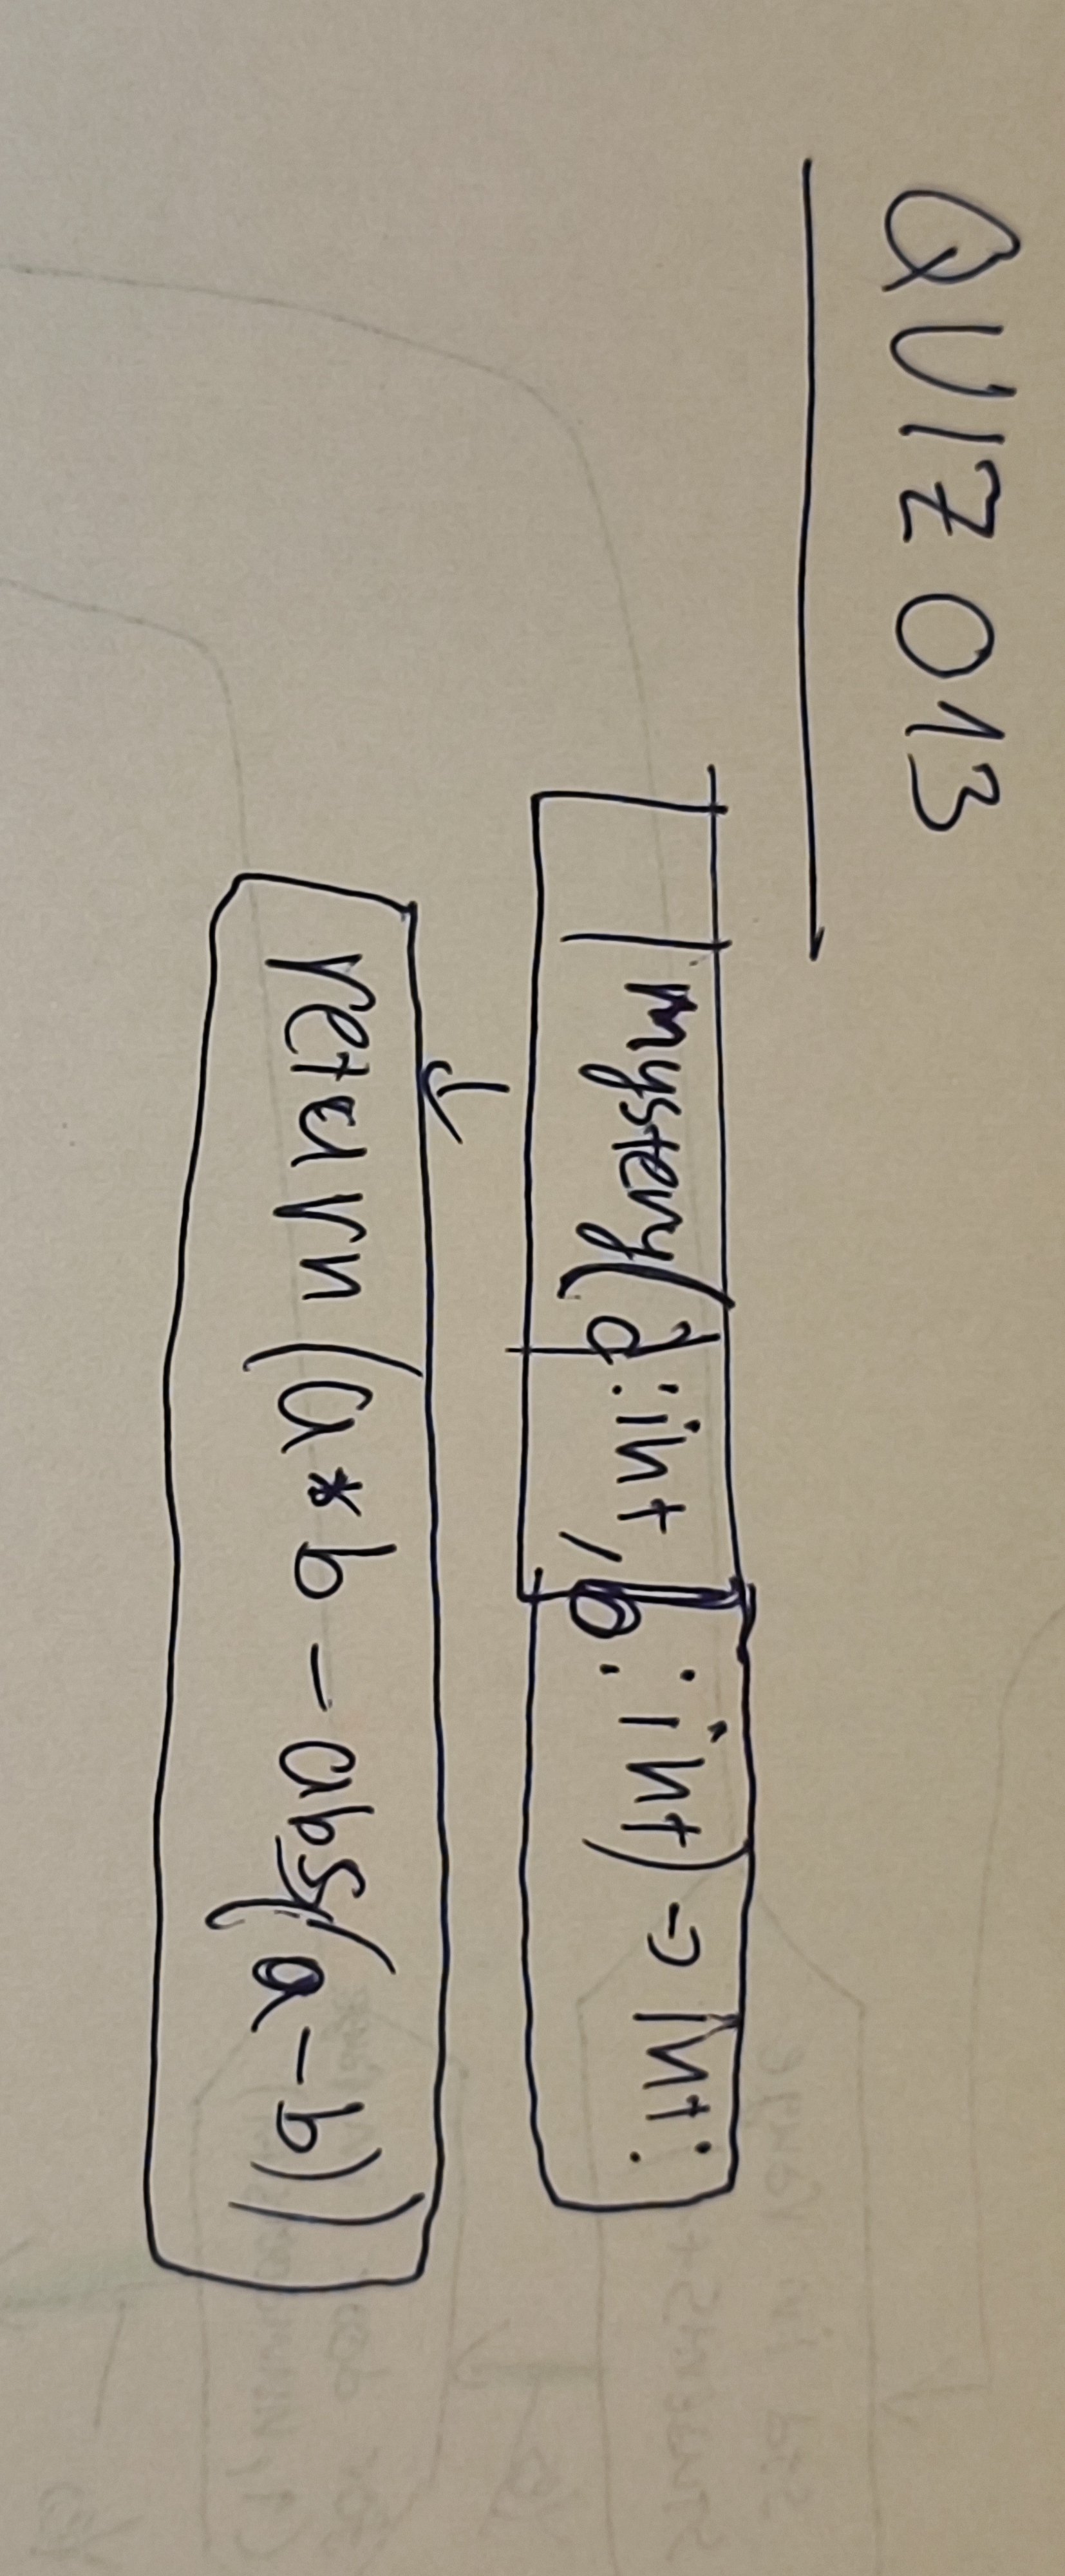 QUIZ 013
mystery(a:int, b:int) -> int:
return (a*b - abs(a-b))